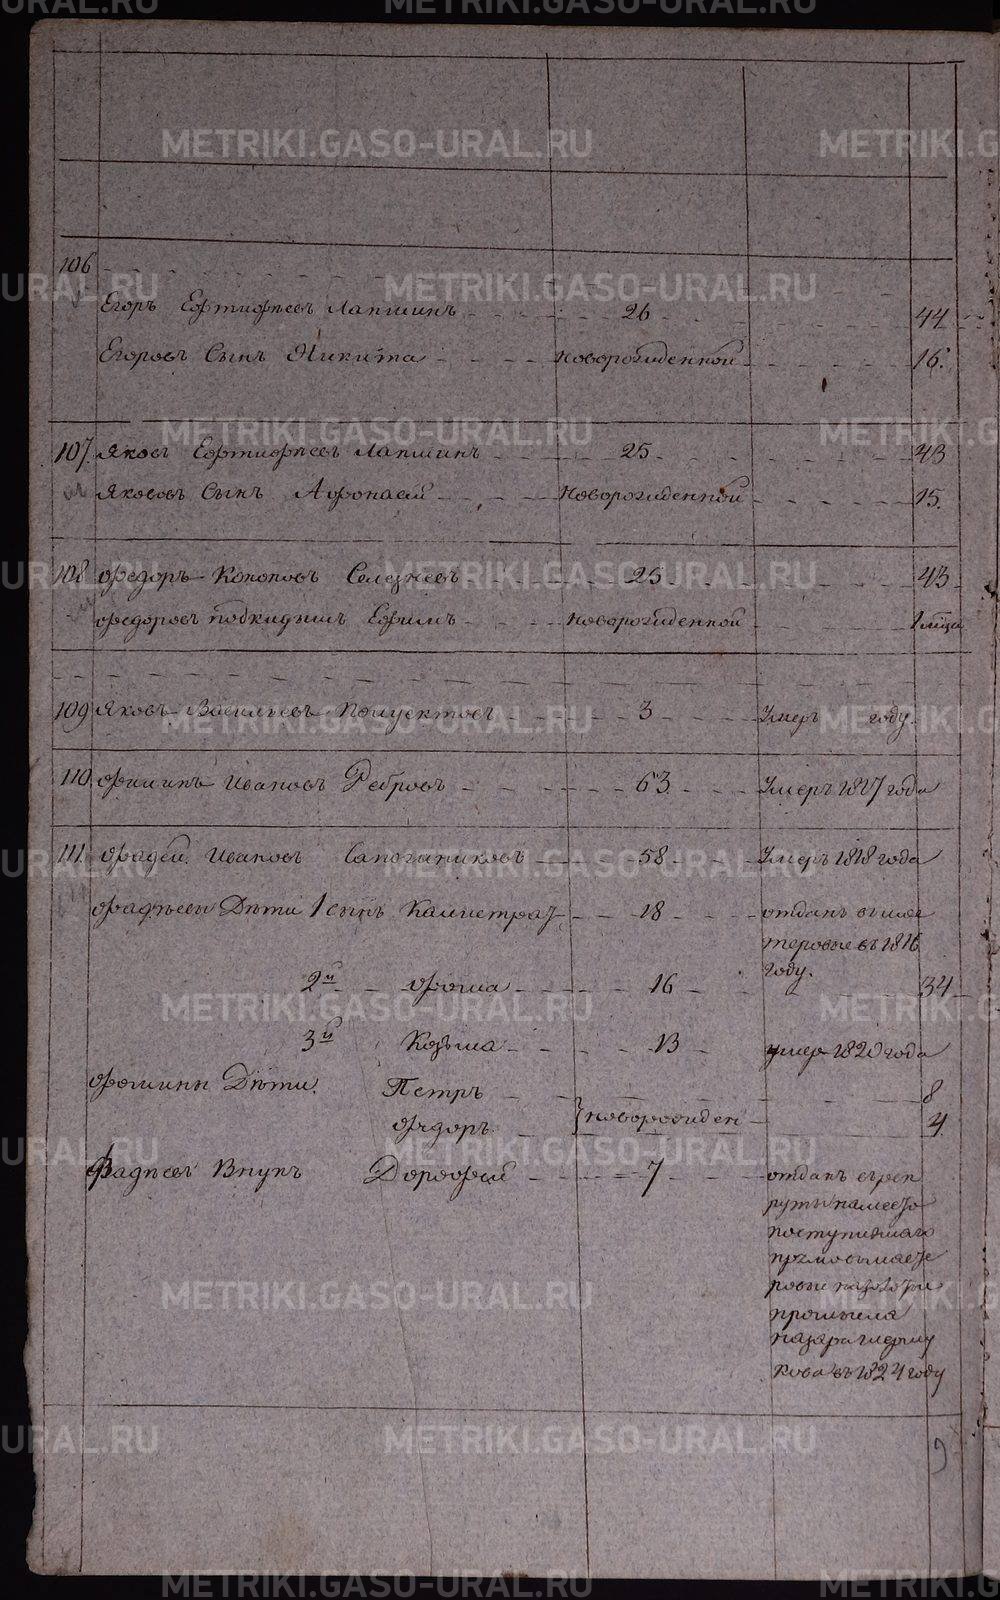 106
Егоръ Ефтифѣевъ Лапшинъ 26 44
Егоровъ Сынъ Никита новорожденной 16.
107. Яковъ Ефтифѣевъ Лапшинъ 25 43
Яковъ Сынъ Афонасей Новорожденной 15.
108 Федоръ Кононовъ Селезневъ 25 43
Федоровъ подкидышъ Ефимъ новорожденной 1 мѣца
109 Яковъ Васильевъ Полуектовъ 3 Умеръ году.
110. Филипъ Ивановъ Ребровъ 63 Умеръ 1817 года
111. Фадей Ивановъ Сапожниковъ 58 Умеръ 1818 года
Фадѣевы Дѣти 1 сынъ Калистратъ 18 отданъ в мас
теровые въ 1816
году.
2й Фома 16 34
3й Козьма 13 умер 1820 года
Фомины Дѣти. Петръ 8
Федоръ новорожден 4
Фадѣевъ Внукъ Дорофей 7 отданъ в рек
руты наместо
поступившаго
ровые
промысла
кова въ 1824 году
METRIKI.GASO-URAL.RU